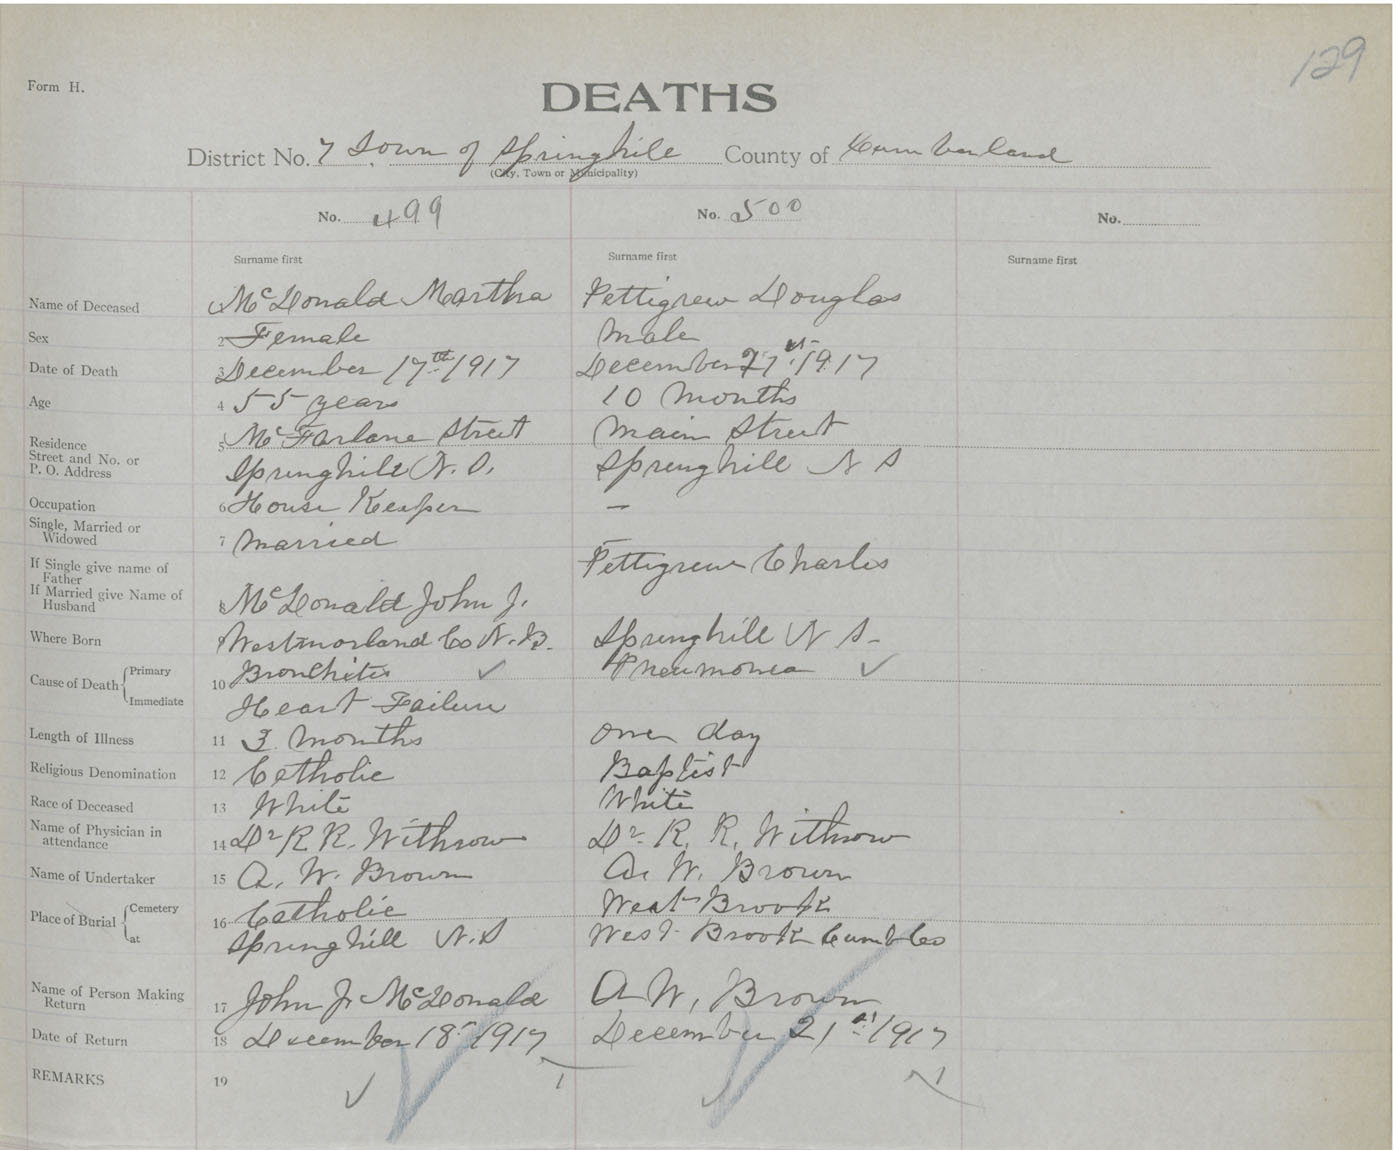 129
Form H.
DEATHS
District No. 7 Town of Springhill County of Cumberland
(City, Town or Municipality)
No. 499 No. 500 No.
Surname first Surname first Surname first
Name of Deceased McDonald Martha Pettigrew Douglas
Sex 2 Female Male
Date of Death 3 December 17th 1917 December 1917
Age 4 55 years 10 Months
Residence
Street and No. or
P. O. Address
5 McFarlane Street Main Street
Springhill N.S. Springhill N S
Occupation 6 House Keeper —
Single, Married or
Widowed
7 Married —
If Single give name of
Father
Pettigrew Charles
If Married give Name of
Husband
8 McDonald John J.
Where Born Westmorland Co N.B. Springhill N S-
Cause of Death { Primary 10 Bronchitis ✓ Pneumonea ✓
Immediate Heart Failure
Length of Illness 11 3 months one day
Religious Denomination 12 Catholic Baptist
Race of Deceased 13 White White
Name of Physician in
attendance
14 Dr R R. Withrow Dr. R. R. Withrow
Name of Undertaker 15 A. W. Brown A. W. Brown
Place of Burial { Cemetery 16 Catholic West Brook
at Springhill N.S West Brook Cumb Co
Name of Person Making
Return
17 John J. McDonald A W. Brown
Date of Return 18 December 18 1917 December 21st 1917
REMARKS 19 ✓ 1 ✓ 1